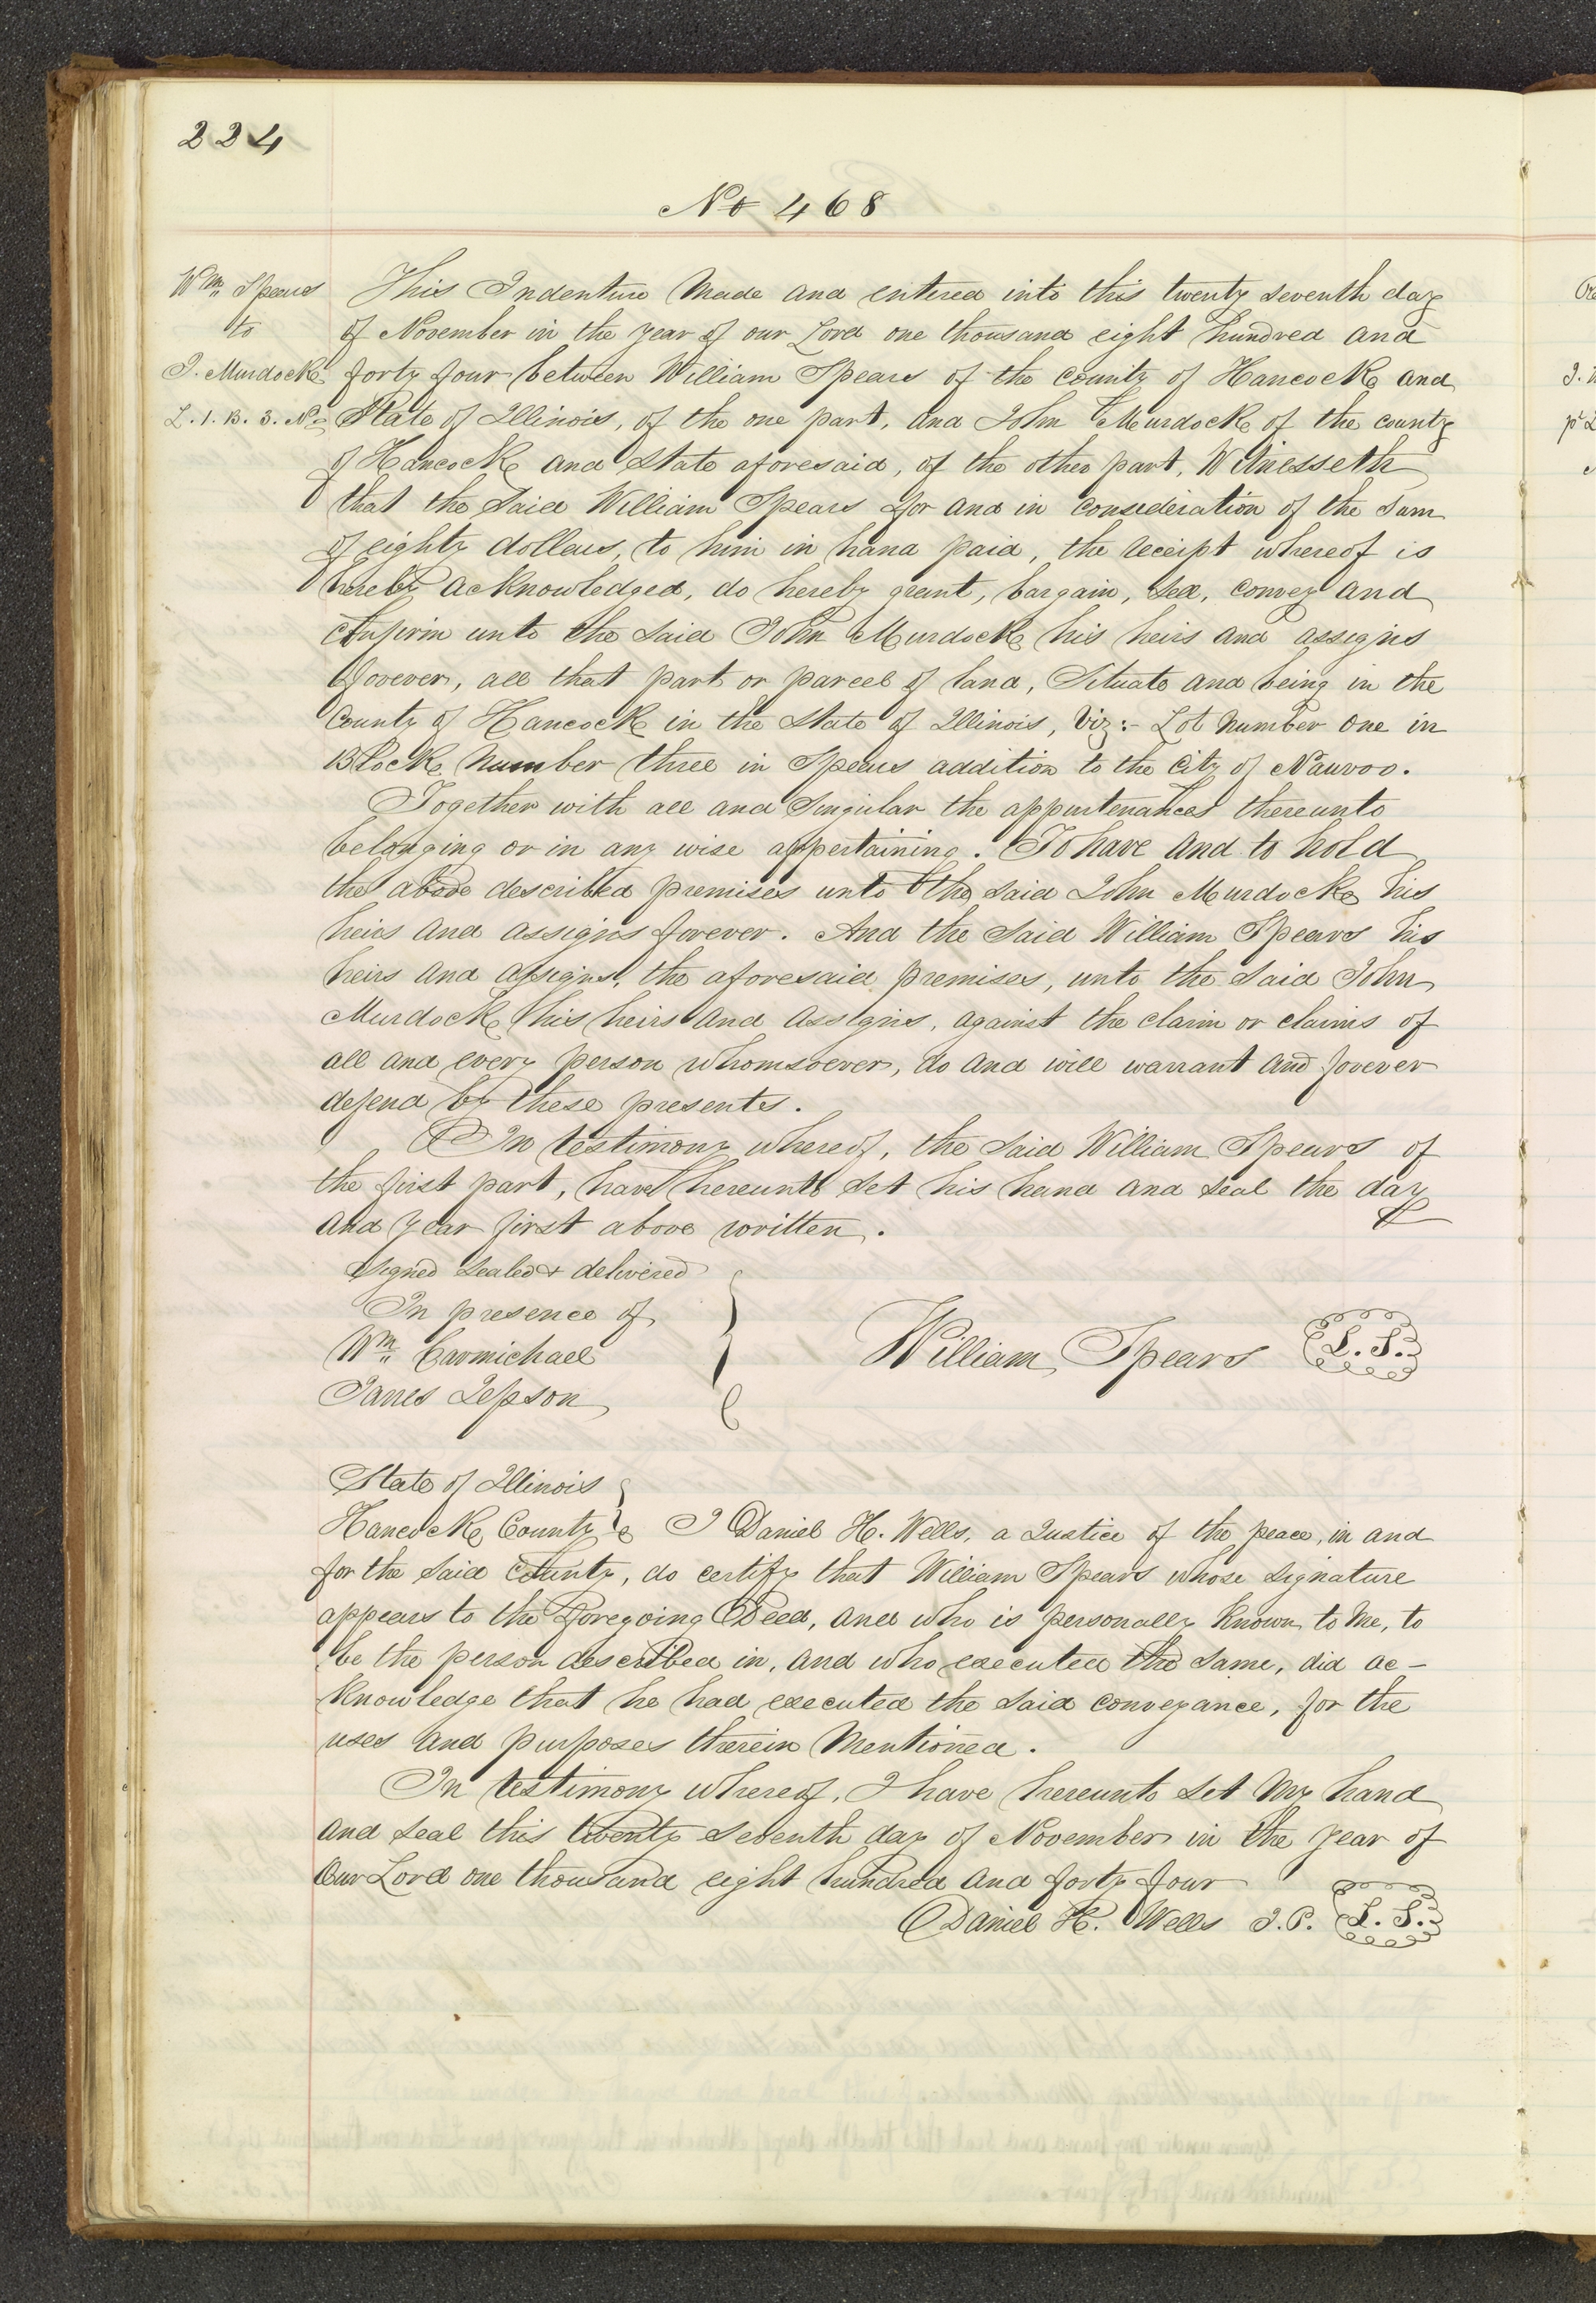 224
No 468
Wm Spears
to
J. Murdock
L. 1. B. 3. No
This Indenture Made and entered into this twenty seventh day
of November in the year of our Lord one thousand eight hundred and
forty four between William Spears of the county of Hancock and
State of Illinois, of the one part, and John Murdock of the county
of Hancock and State aforesaid, of the other part, Witnesseth
that the Said William Spears for and in consideration of the Sum
of eighty dollars, to him in hand paid, the receipt whereof is
hereby acknowledged, do hereby grant, bargain, sell, convey and
Confirm unto the Said John Murdock his heirs and assigns
forever, all that part or parcel of land, Situate and being in the
County of Hancock in the State of Illinois, Viz:- Lot Number One in
Block Number three in Spears addition to the City of Nauvoo.
Together with all and Singular the appurtenances thereunto
belonging or in any wise appertaining. To have and to hold
the above described premises unto the said John Murdock his
heirs and assigns forever. And the Said William Spears his
heirs and assigns, the aforesaid premises, unto the Said John
Murdock his heirs and assigns, against the claim or claims of
all and every person whomsoever, do and will warrant and forever
defend by these presents.
In testimony whereof, the Said William Spears of
the first part, have hereunto Set his hand and seal the day
and year first above written.
Signed Sealed & delivered
In presence of
Wm Carmichael
James Jepson
William Spears L. S.
State of Illinois
Hancock County I Daniel H. Wells, a Justice of the peace, in and
for the Said County, do certify that William Spears whose signature
appears to the Foregoing Deed, and who is personally known to Me, to
be the person described in, and who executed the Same, did ac-
knowledge that he had executed the Said conveyance, for the
uses and purposes therein Mentioned.
In testimony whereof, I have hereunto Set My hand
and seal this twenty Seventh day of November in the year of
Our Lord one thousand eight hundred and forty four
Daniel H. Wells J. P. L. S.